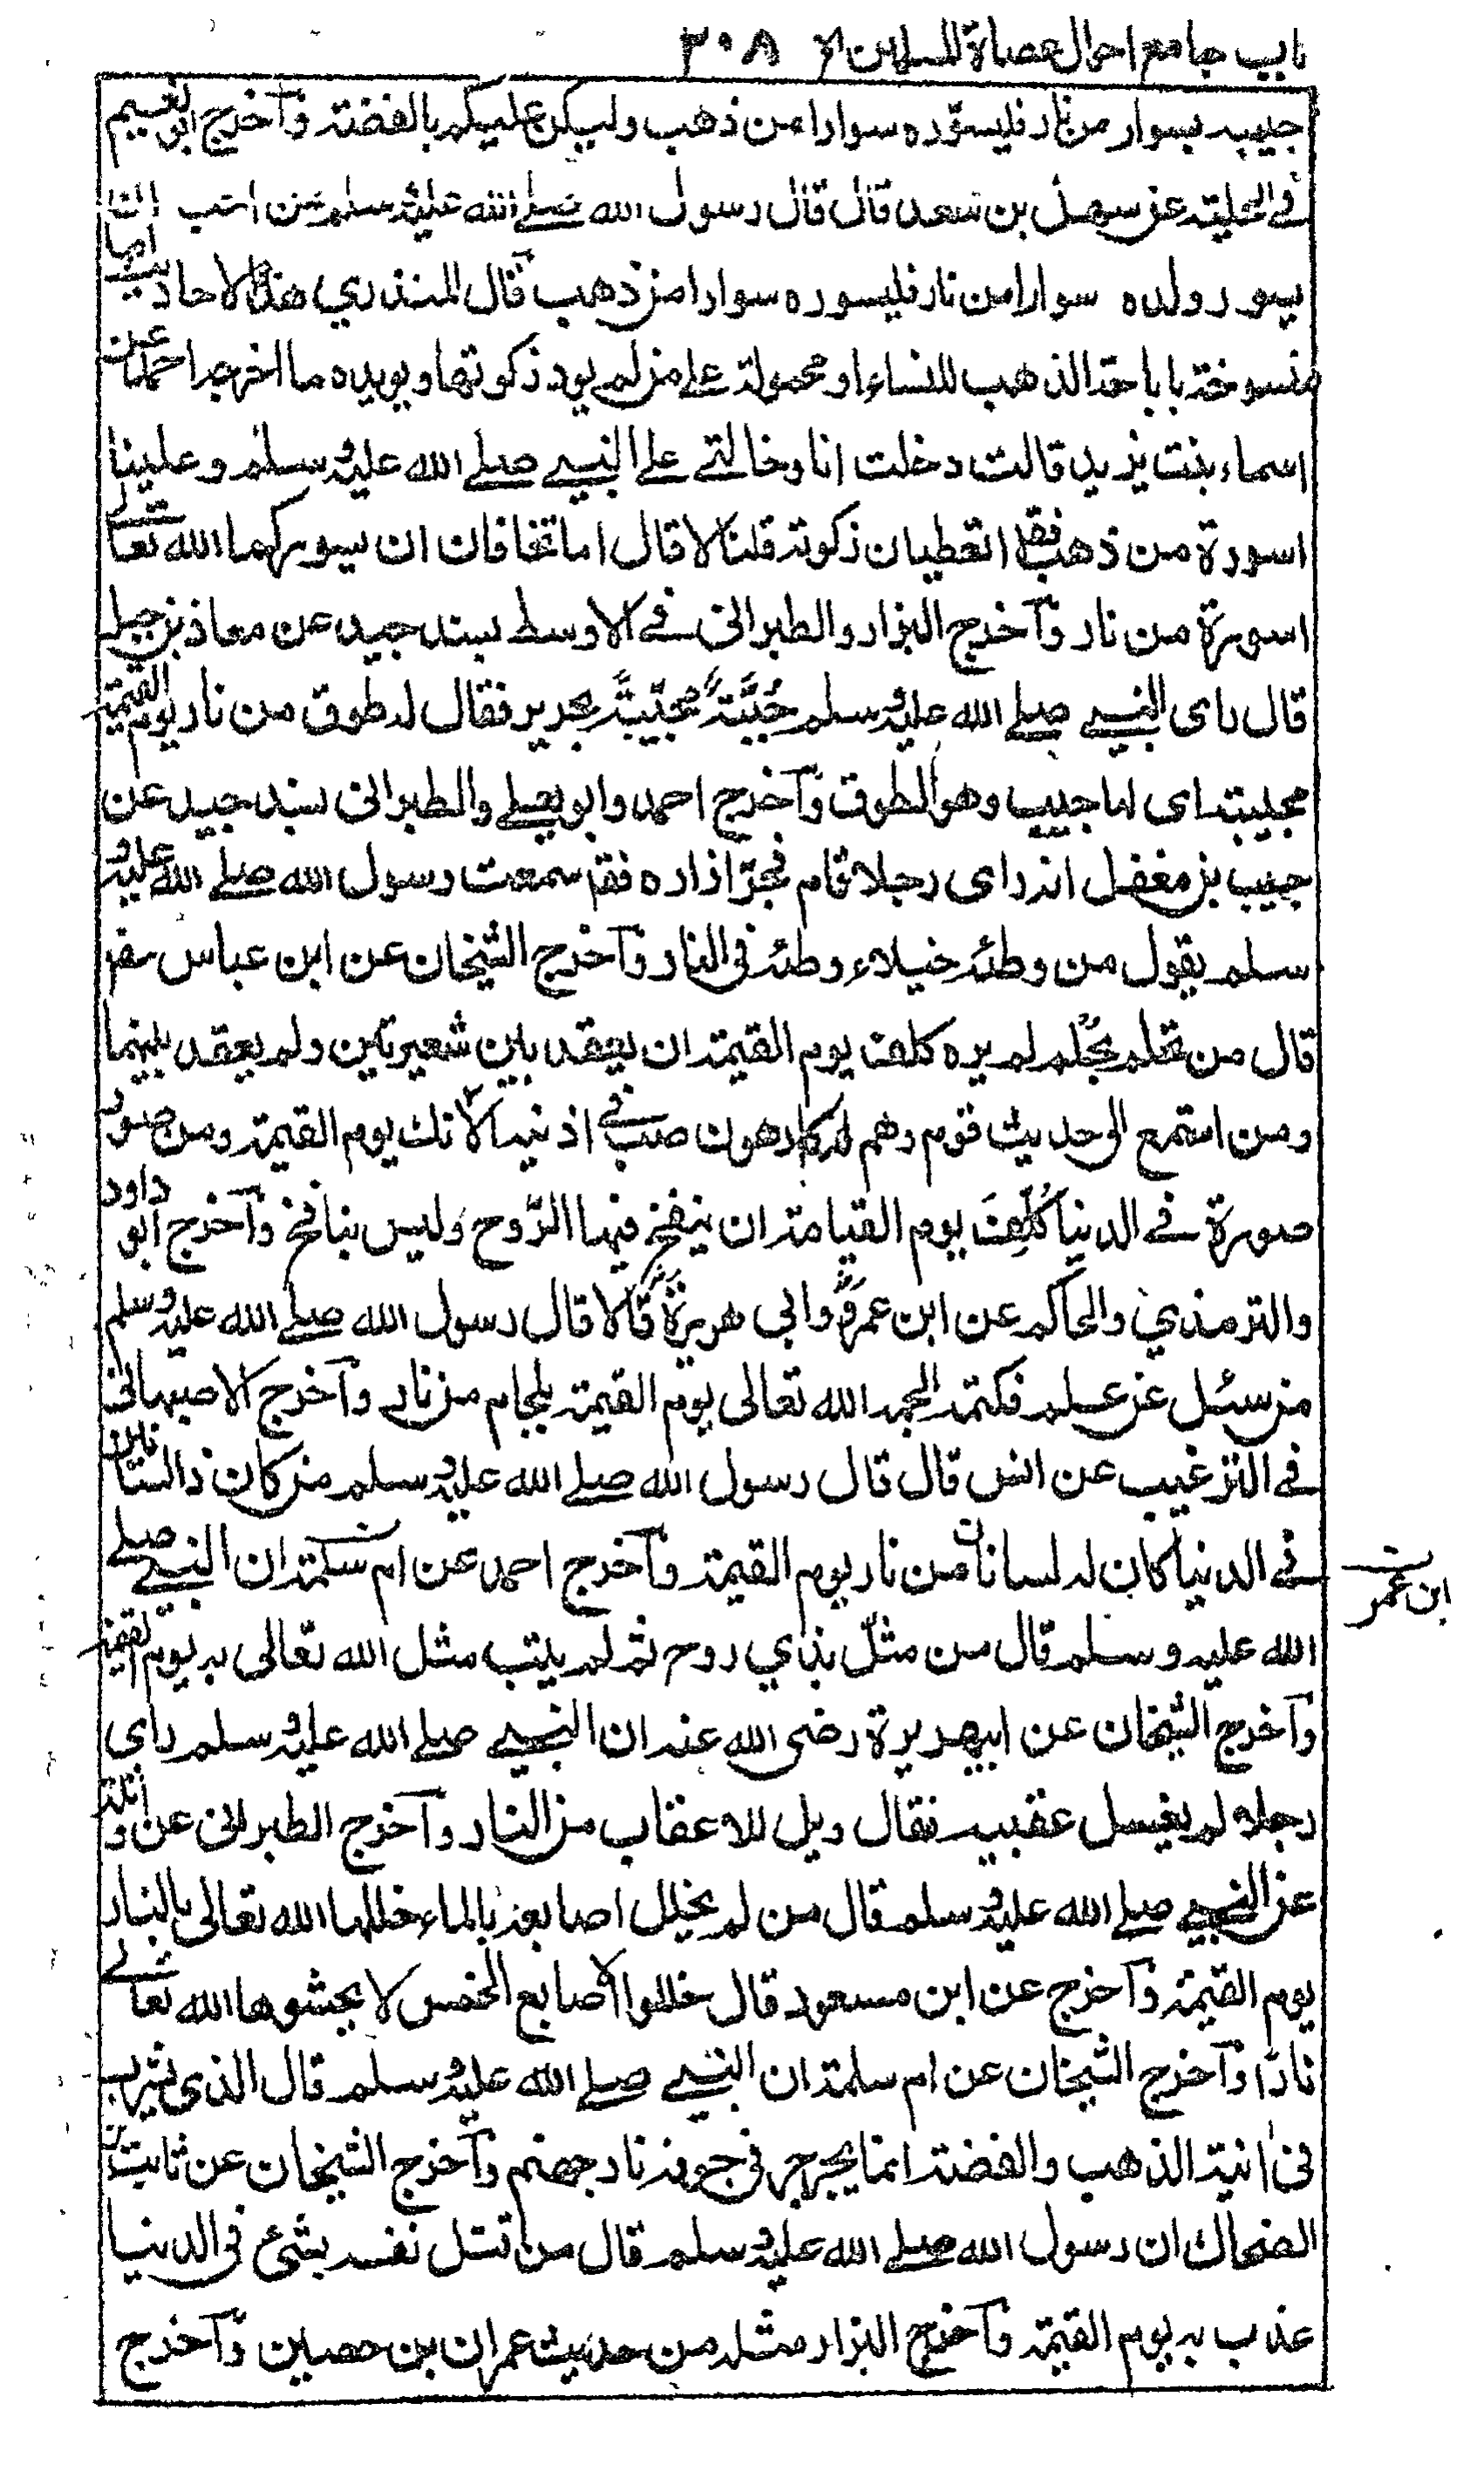 باب جامع احوال عصاة المسلمين الا ٣٠٨
حبيبه بسوار من نار فليسوّره سوارا من ذهب وليكن عليكم بالفضة وآخرج ابو نعيم
فى الحلية عن سهل بن سعد قال قال رسول الله صلى الله عليه وسلم من احب ان
يسور ولده سوارا من نار فليسوره سوارا من ذهب قال المنذري هذه الاحاديث اما
منسوخة باباحة الذهب للنساء او محمولة على من لم يود زكوتها ويويده ما اخرجه احمد عن
اسماء بنت يزيد قالت دخلت انا وخالتى على النبى صلى الله عليه وسلم وعلينا
اسورة من ذهب فقا اتعطيان زكوته قلنا لا قال اما تخافان ان يسوركما الله تعالى
اسورة من نار وآخرج البزار والطبرانى فى الاوسط بسند جيد عن معاذ بن جبل
قال راى النبى صلى الله عليه وسلم جُبَّة مجيّبة بحرير فقال له طوق من نار يوم القيمة
مجيبة اى لها جيب وهو الطوق وآخرج احمد وابو يعلى والطبرانى بسند جيد عن
حبيب بن مغفل انه راى رجلا قام فجرّ ازاره فقا سمعت رسول الله صلى الله عليه
سلم يقول من وطئه خيلاء وطئه فى النار وآخرج الشيخان عن ابن عباس
قال من تحلم بحُلم لم يره كلف يوم القيمة ان يعقد بين شعيرتين ولم يعقد بينهما
ومن استمع الى حديث قوم وهم له كارهون صب فى اذنيه الآنك يوم القيمة ومن صور
صورة فى الدنيا كُلِّفَ يوم القيامة ان ينفخ فيها الرّوح وليس بنافخ وآخرج ابو داود
والترمذي والحاكم عن ابن عمرو وابى هريرة قالا قال رسول الله صلى الله عليه وسلم
من سئل عن علم فكتمه الجمه الله تعالى يوم القيمة بلجام من نار وآخرج الاصبهانى
فى الترغيب عن انس قال قال رسول الله صلى الله عليه وسلم من كان ذا لسانين
فى الدنيا كان له لسانان من نار يوم القيمة وآخرج احمد عن ام سلمة ان النبى صلى
ابن عمر
الله عليه وسلم قال من مثّل بذي روح ثم لم يتب مثل الله تعالى به يوم القيمة
وآخرج الشيخان عن ابيهريرة رضى الله عنه ان النبى صلى الله عليه وسلم راى
رجلا لم يغسل عقبيه فقال ويل للاعقاب من النار وآخرج الطبرانى عن واثلة
عن النبى صلى الله عليه وسلم قال من لم يخلل اصابعه بالماء خللها الله تعالى بالنار
يوم القيمة وآخرج عن ابن مسعود قال خللوا الاصابع الخمس لا يحشوها الله تعالى
نارا وآخرج الشيخان عن ام سلمة ان النبى صلى الله عليه وسلم قال الذى يشرب
فى انية الذهب والفضة انما يجرجر فى جوفه نار جهنم وآخرج الشيخان عن ثابت بن
الضحاك ان رسول الله صلى الله عليه وسلم قال من قتل نفسه بشئ فى الدنيا
عذب به يوم القيمة وآخرج البزار مثله من حديث عمران بن حصين وآخرج